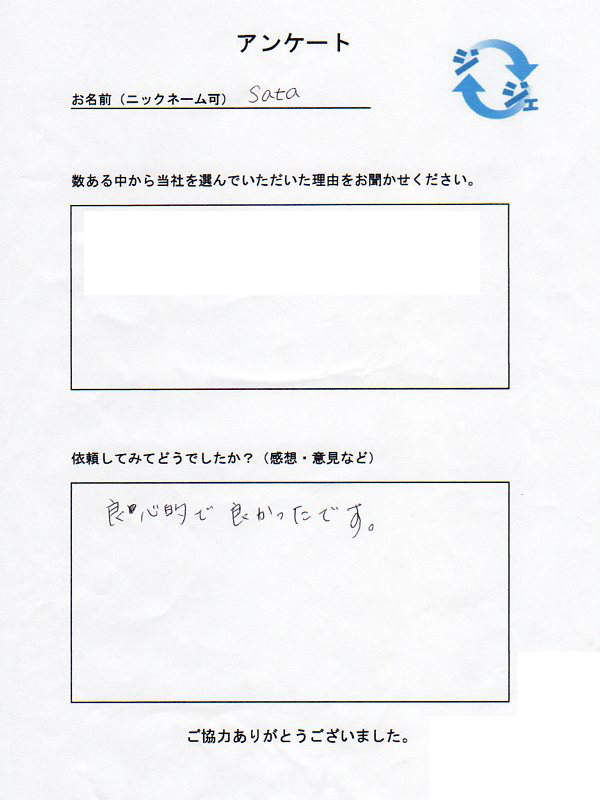 アンケート
ジェ
ジェ
お名前（ニックネーム可） Sata
数ある中から当社を選んでいただいた理由をお聞かせください。
依頼してみてどうでしたか？（感想・意見など）
良心的で良かったです。
ご協力ありがとうございました。